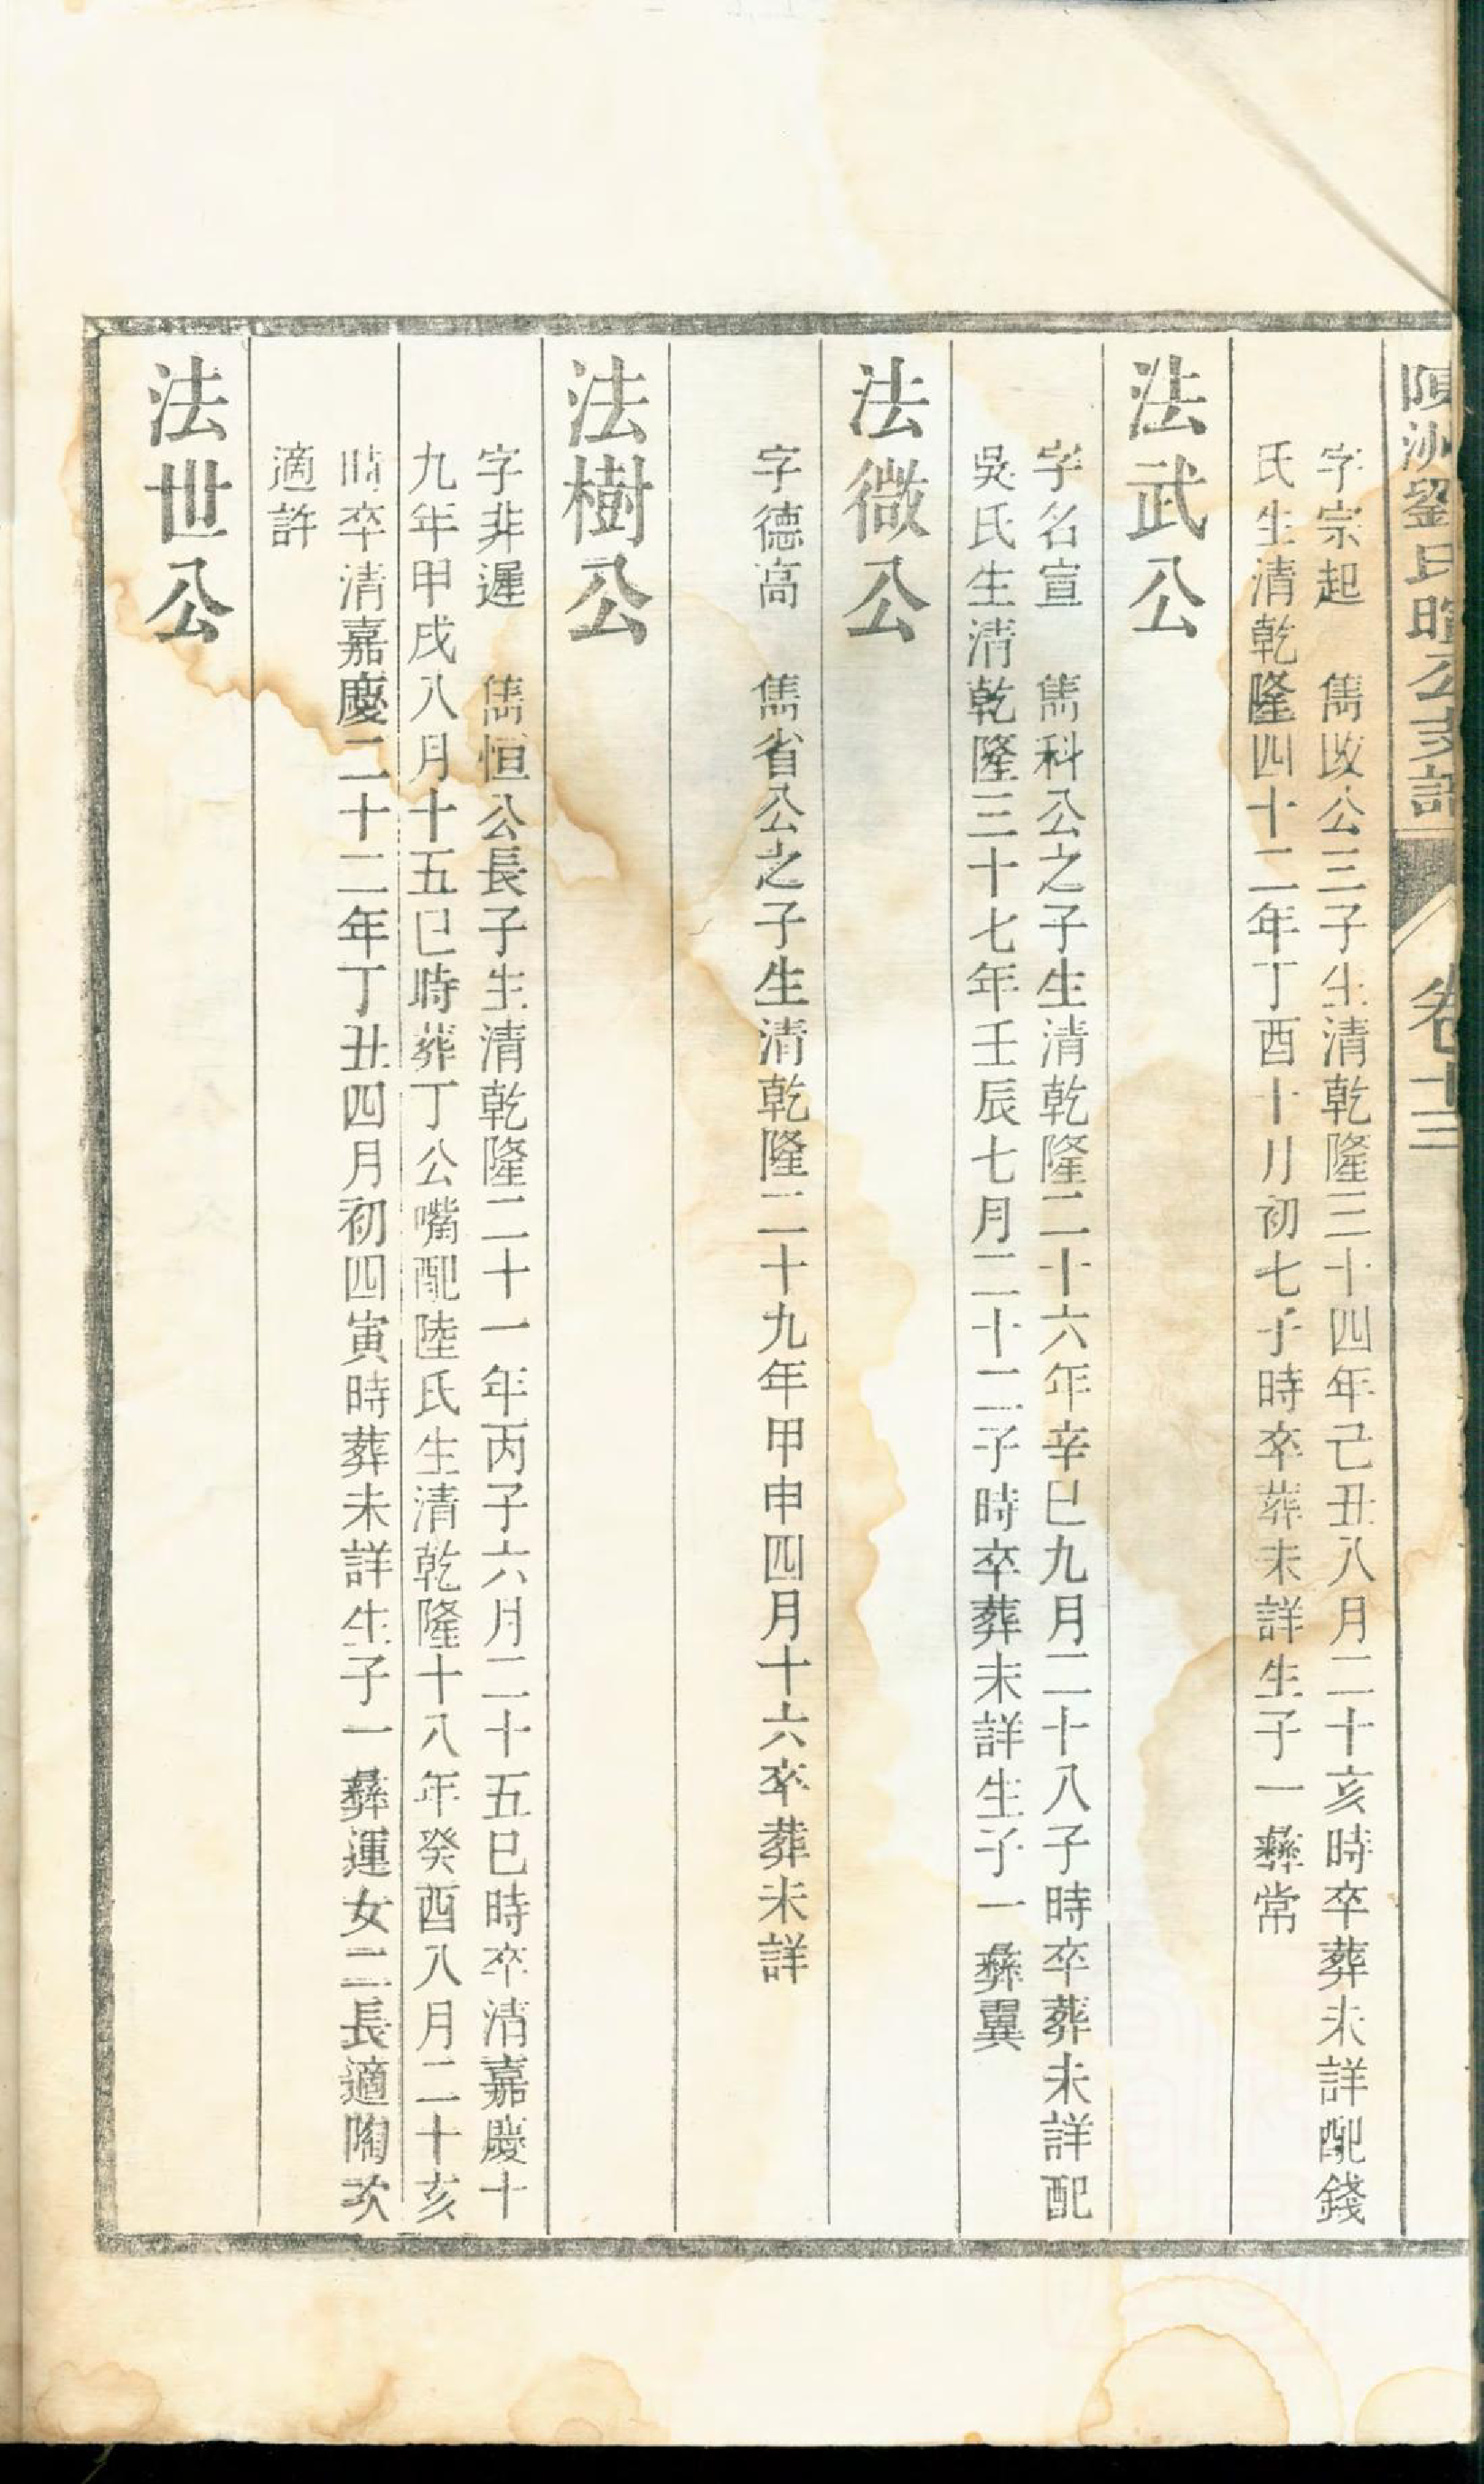 劉氏暄公支譜 卷十三
字宗起 儁改公三子生清乾隆三十四年己丑八月二十亥時卒葬未詳配錢
氏生清乾隆四十二年丁酉十月初七子時卒葬未詳生子一彝常
法武公
字名宣 儁科公之子生清乾隆二十六年辛巳九月二十八子時卒葬未詳配
吳氏生清乾隆三十七年壬辰七月二十二子時卒葬未詳生子一彝翼
法微公
字德高 儁省公之子生清乾隆二十九年甲申四月十六卒葬未詳
法樹公
字非遲 儁恒公長子生清乾隆二十一年丙子六月二十五巳時卒清嘉慶十
九年甲戌八月十五巳時葬丁公嘴配陸氏生清乾隆十八年癸酉八月二十亥
時卒清嘉慶二十二年丁丑四月初四寅時葬未詳生子一彝運女二長適陶次
適許
法世公